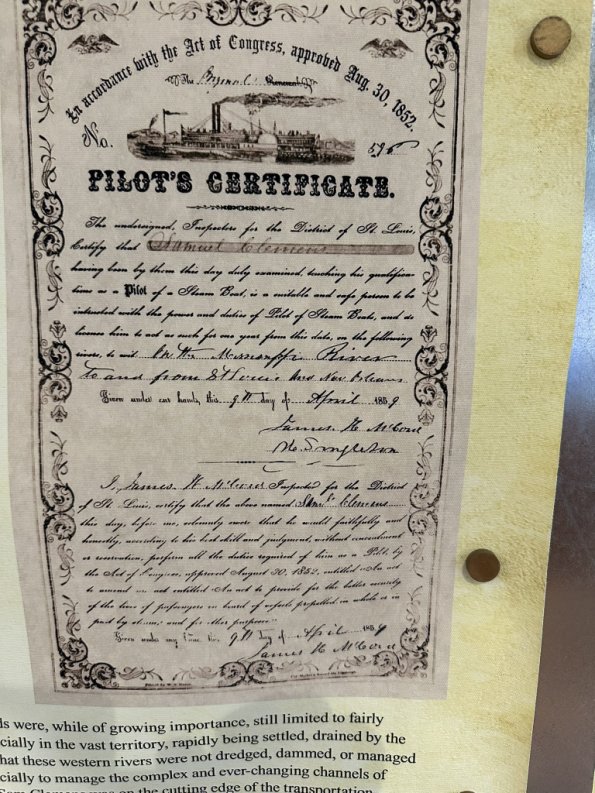 In accordance with the Act of Congress, approved Aug. 30, 1852.
The
No. 
PILOT'S CERTIFICATE.
The undersigned, Inspectors for the District of St. Louis,
Certify that Samuel Clemens
having been by them this day duly examined, touching his qualifica-
tions as a Pilot of a Steam Boat, is a suitable and safe person to be
intrusted with the power and duties of Pilot of Steam Boats, and do
license him to act as such for one year from this date, on the following
rivers, to wit: On the Mississippi River
to and from St Louis and New Orleans
Given under our hands, this 9th day of April 1859
James H McCord
H. Singleton
I, James H McCord Inspector for the District
of St. Louis, certify that the above named Saml Clemens
this day, before me, solemnly swore that he would faithfully and
honestly, according to his best skill and judgment, without concealment
or reservation, perform all the duties required of him as a Pilot, by
the Act of Congress, approved August 30, 1852, entitled "An act
to amend an act entitled "An act to provide for the better security
of the lives of passengers on board of vessels propelled in whole or in
part by steam, and for other purposes."
Given under my hand, this 9th day of April 1859
James H McCord
ds were, while of growing importance, still limited to fairly
cially in the vast territory, rapidly being settled, drained by the
hat these western rivers were not dredged, dammed, or managed
cially to manage the complex and ever-changing channels of
Sam Clemens was on the cutting edge of the transportation